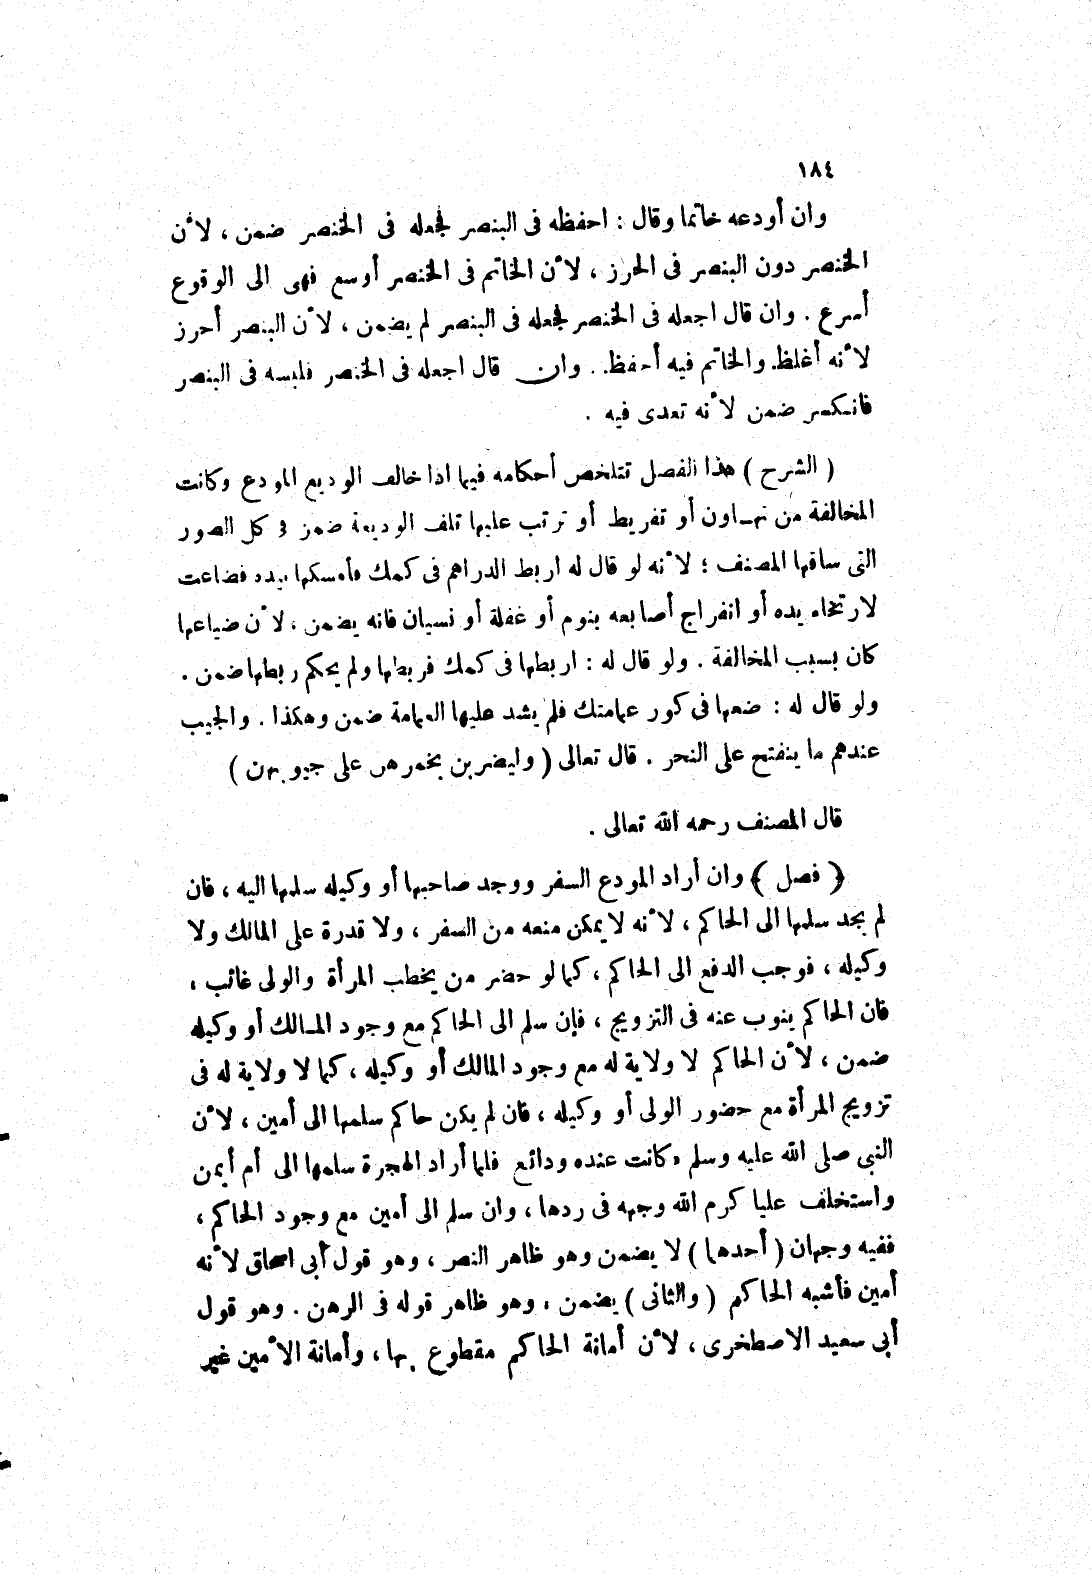 ١٨٤
وان أودعه خاتما وقال : احفظه فى البنصر فجعله فى الخنصر ضمن ، لأن
الخنصر دون البنصر فى الحرز ، لأن الخاتم فى الخنصر أوسع فهى الى الوقوع
أسرع . وان قال اجعله فى الخنصر فجعله فى البنصر لم يضمن ، لأن البنصر أحرز
لأنه أغلظ والخاتم فيه أحفظ . وان قال اجعله فى الخنصر فلبسه فى البنصر
فانكسر ضمن لأنه تعدى فيه .
( الشرح ) هذا الفصل تتلخص أحكامه فيما اذا خالف الوديع المودع وكانت
المخالفة من تهاون أو تفريط أو ترتب عليها تلف الوديعة ضمن فى كل الصور
التى ساقها المصنف ؛ لأنه لو قال له اربط الدراهم فى كمك فأمسكها بيده فضاعت
لارتخاء يده أو انفراج أصابعه بنوم أو غفلة أو نسيان فانه يضمن ، لأن ضياعها
كان بسبب المخالفة . ولو قال له : اربطها فى كمك فربطها ولم يحكم ربطها ضمن .
ولو قال له : ضعها فى كور عمامتك فلم يشد عليها العمامة ضمن وهكذا . والجيب
عندهم ما ينفتح على النحر . قال تعالى ( وليضربن بخمرهن على جيوبهن )
قال المصنف رحمه الله تعالى .
﴿ فصل ﴾ وان أراد المودع السفر ووجد صاحبها أو وكيله سلمها اليه ، فان
لم يجد سلمها الى الحاكم ، لأنه لا يمكن منعه من السفر ، ولا قدرة على المالك ولا
وكيله ، فوجب الدفع الى الحاكم ، كما لو حضر من يخطب المرأة والولى غائب ،
فان الحاكم ينوب عنه فى التزويج ، فإن سلم الى الحاكم مع وجود المالك أو وكيله
ضمن ، لأن الحاكم لا ولاية له مع وجود المالك أو وكيله ، كما لا ولاية له فى
تزويج المرأة مع حضور الولى أو وكيله ، فان لم يكن حاكم سلمها الى أمين ، لأن
النبى صلى الله عليه وسلم كانت عنده ودائع فلما أراد الهجرة سلمها الى أم أيمن
واستخلف عليا كرم الله وجهه فى ردها ، وان سلم الى أمين مع وجود الحاكم ،
ففيه وجهان ( أحدهما ) لا يضمن وهو ظاهر النص ، وهو قول أبى اسحاق لأنه
أمين فأشبه الحاكم ( والثانى ) يضمن ، وهو ظاهر قوله فى الرهن . وهو قول
أبى سعيد الاصطخرى ، لأن أمانة الحاكم مقطوع بها ، وأمانة الأمين غير